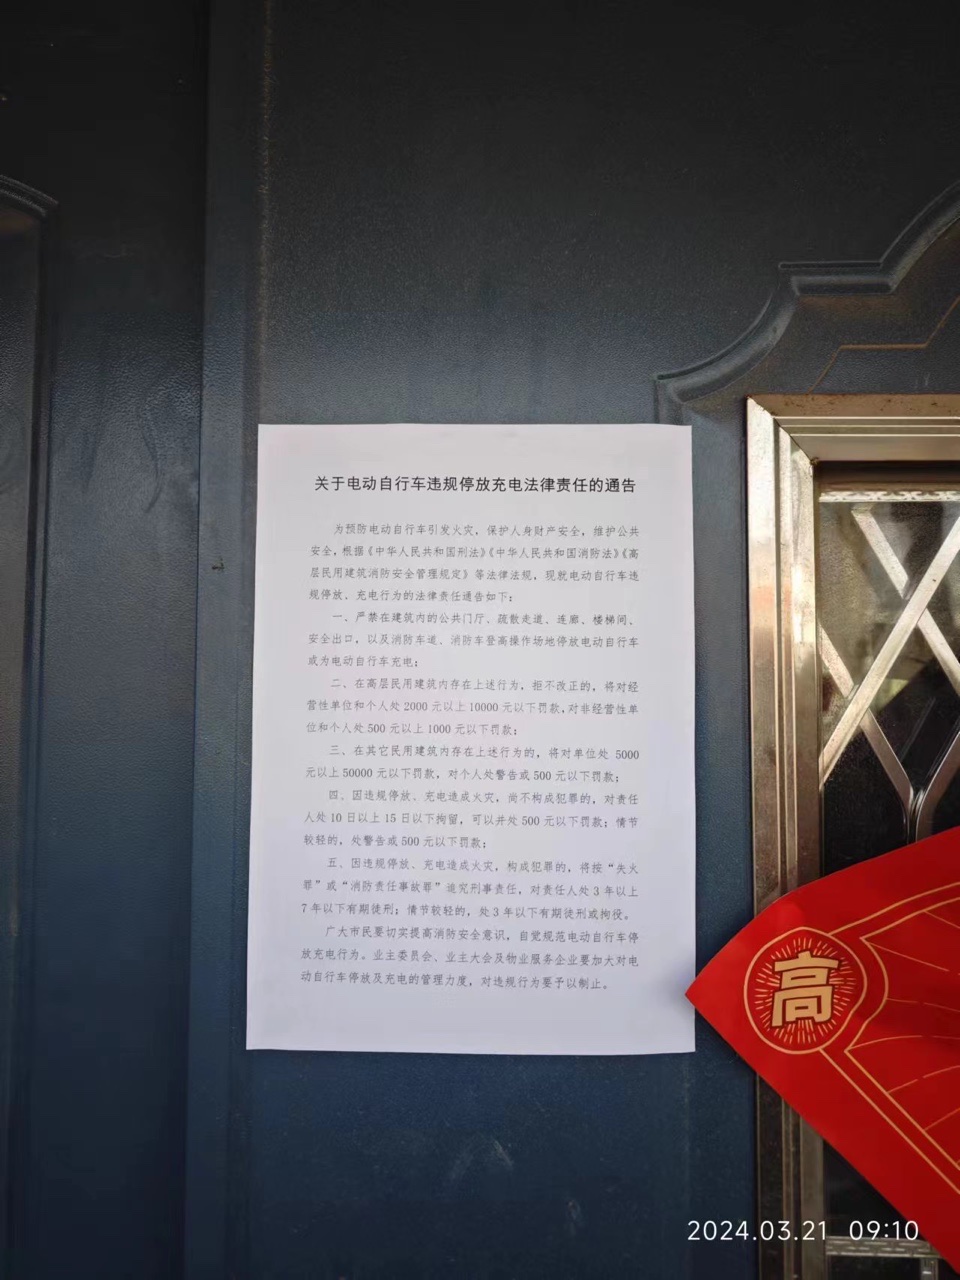 关于电动自行车违规停放充电法律责任的通告
为预防电动自行车引发火灾，保护人身财产安全，维护公共
安全，根据《中华人民共和国刑法》《中华人民共和国消防法》《高
层民用建筑消防安全管理规定》等法律法规，现就电动自行车违
规停放、充电行为的法律责任通告如下：
一、严禁在建筑内的公共门厅、疏散走道、连廊、楼梯间、
安全出口，以及消防车道、消防车登高操作场地停放电动自行车
或为电动自行车充电；
二、在高层民用建筑内存在上述行为，拒不改正的，将对经
营性单位和个人处 2000 元以上 10000 元以下罚款，对非经营性单
位和个人处 500 元以上 1000 元以下罚款；
三、在其它民用建筑内存在上述行为的，将对单位处 5000
元以上 50000 元以下罚款，对个人处警告或 500 元以下罚款；
四、因违规停放、充电造成火灾，尚不构成犯罪的，对责任
人处 10 日以上 15 日以下拘留，可以并处 500 元以下罚款；情节
较轻的，处警告或 500 元以下罚款；
五、因违规停放、充电造成火灾，构成犯罪的，将按“失火
罪”或“消防责任事故罪”追究刑事责任，对责任人处 3 年以上
7 年以下有期徒刑；情节较轻的，处 3 年以下有期徒刑或拘役。
广大市民要切实提高消防安全意识，自觉规范电动自行车停
放充电行为。业主委员会、业主大会及物业服务企业要加大对电
动自行车停放及充电的管理力度，对违规行为要予以制止。
高
2024.03.21 09:10